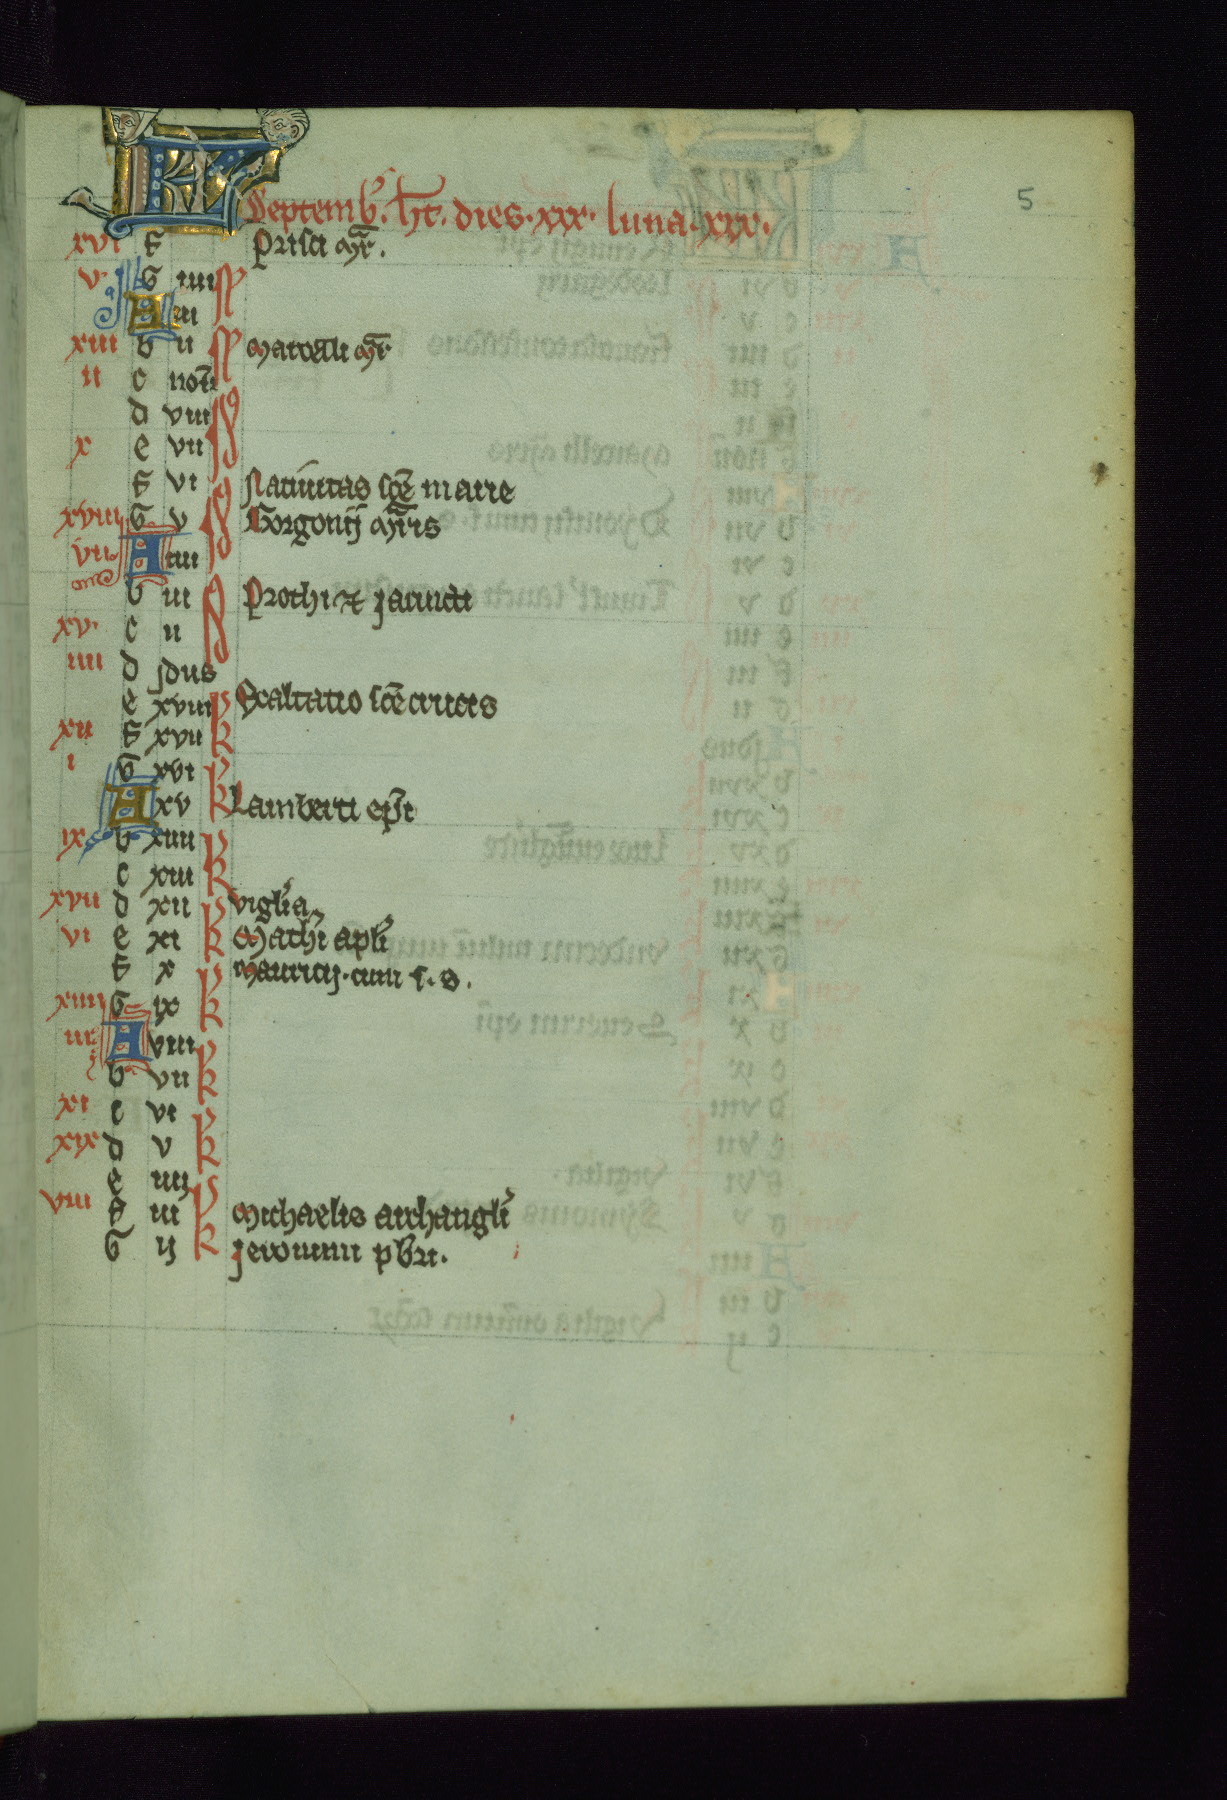 5
KL Septemb'. ht. dies. xxx. luna. xxx.
xvi f Prisci mr.
v. g iiii N
A iii
xiii b ii N Marcelli mr
ii c non
d viii Id
x e vii
f vi Natiuitas sce marie
xviii g v Id Gorgonij mris
vii A iiii
b iii Id Prothi et Jacincti
xv. c ii
iiii d Idus
e xviii Exaltatio sce crucis
xii f xvii K
i g xvi
A xv K Lamberti epi
ix b xiiii
c xiii K
xvii d xii viglia
vi e xi K Mathi apli
f x Mauricij. cum s. s.
xiiii g ix K
iii A viii
b vii K
xi c vi
xix d v K
e iiii
viii f iii Michaelis archangli
g ij K Jeronimi pbri.